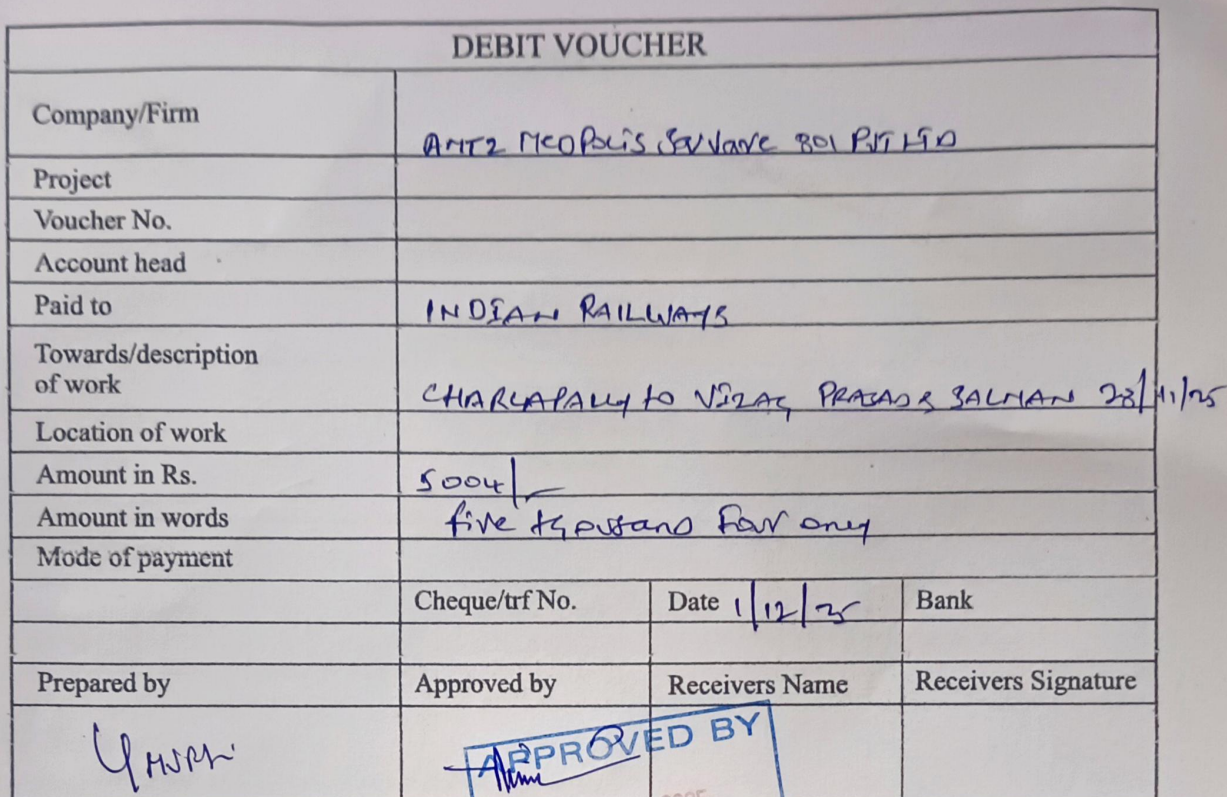 DEBIT VOUCHER
Company/Firm
AMTZ MEDPOLIS SQUARE 801 PVT LTD
Project
Voucher No.
Account head
Paid to INDIAN RAILWAYS
Towards/description
of work CHARLAPALLY to VIZAG PRASAD & SALMAN 28/11/25
Location of work
Amount in Rs. 5004/-
Amount in words five thousand four only
Mode of payment
Cheque/trf No. Date 1/12/25 Bank
Prepared by Approved by Receivers Name Receivers Signature
APPROVED BY